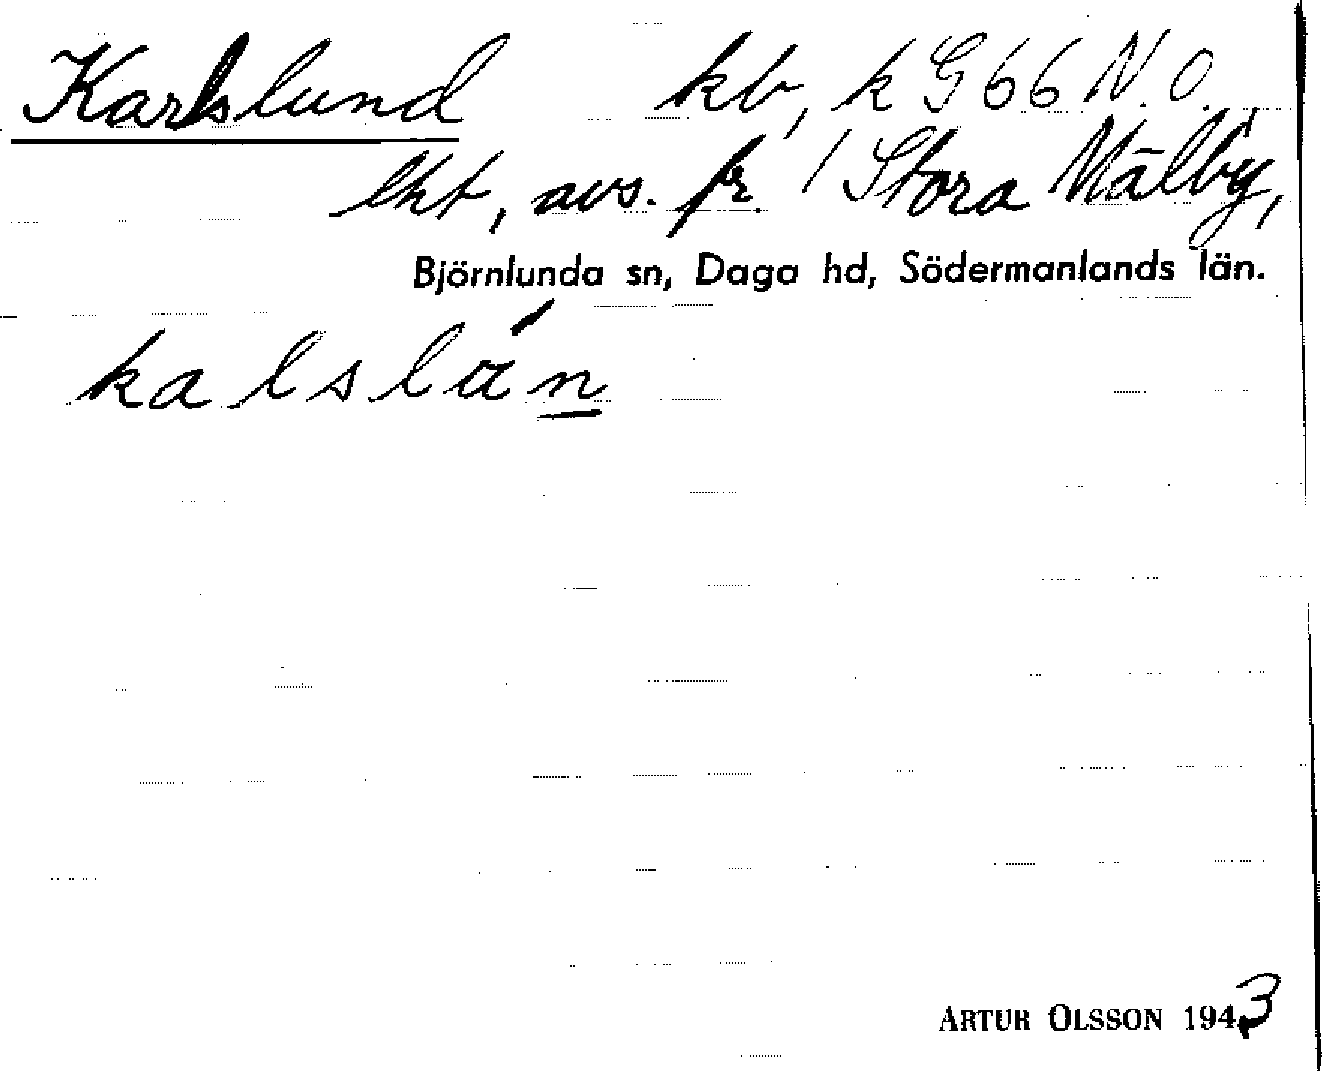 Karlslund kb, k G 66 N.O.
lht, avs. fr. 1 Stora Mälby,
Björnlunda sn, Daga hd, Södermanlands län.
kalslán
ARTUR OLSSON 1943